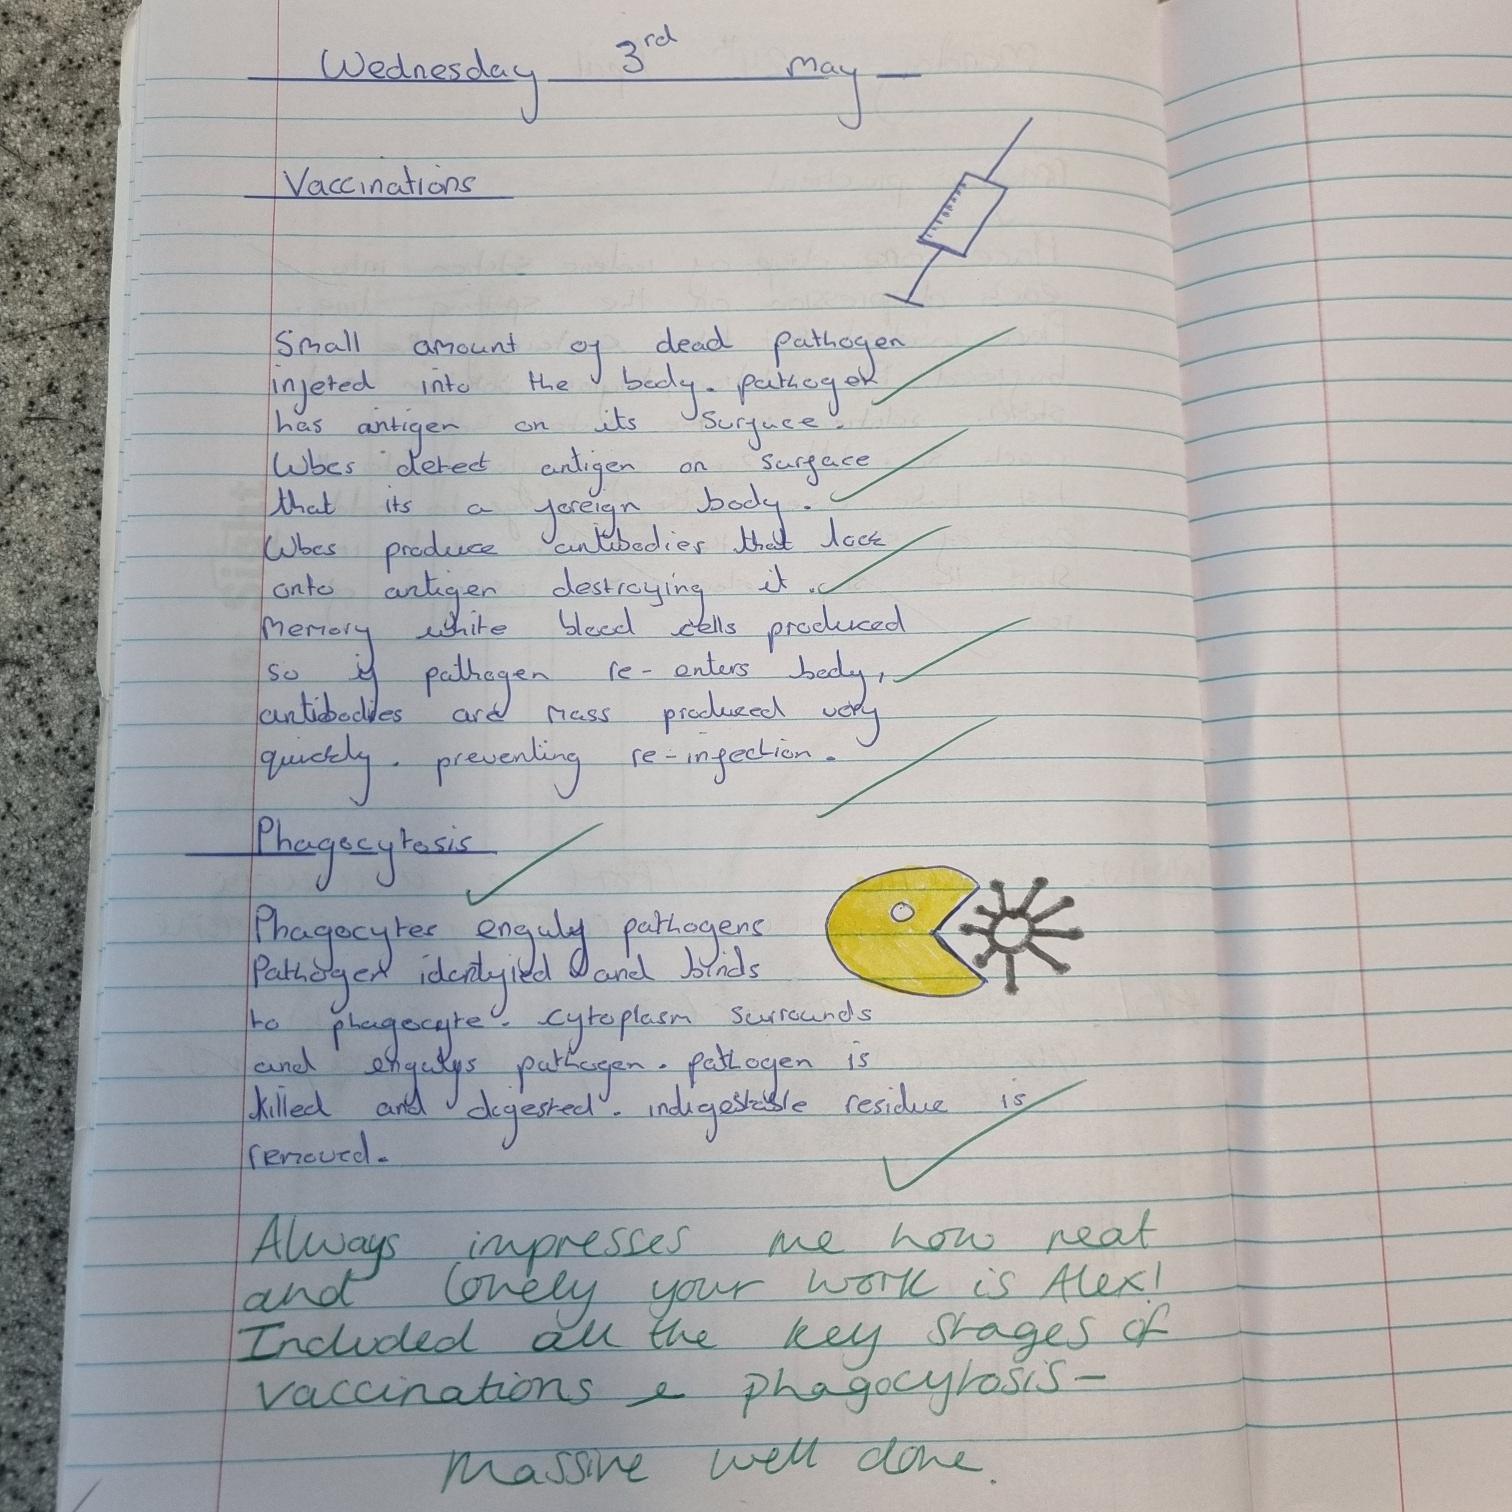 Wednesday 3rd May
Vaccinations
Small amount of dead pathogen
injeted into the body. pathogen
has antigen on its surface.
Wbcs detect antigen on surface
that its a foreign body.
Wbcs produce antibodies that lock
onto antigen destroying it.
Memory white blood cells produced
so if pathogen re-enters body,
antibodies are mass produced very
quickly. preventing re-infection.
Phagocytosis
Phagocytes engulf pathogens
Pathogen identyfied and binds
to phagocyte. cytoplasm surrounds
and engulfs pathogen. pathogen is
killed and digested. indigestable residue is
removed.
Always impresses me how neat
and lovely your work is Alex!
Included all the key stages of
vaccinations & phagocytosis-
Massive well done.